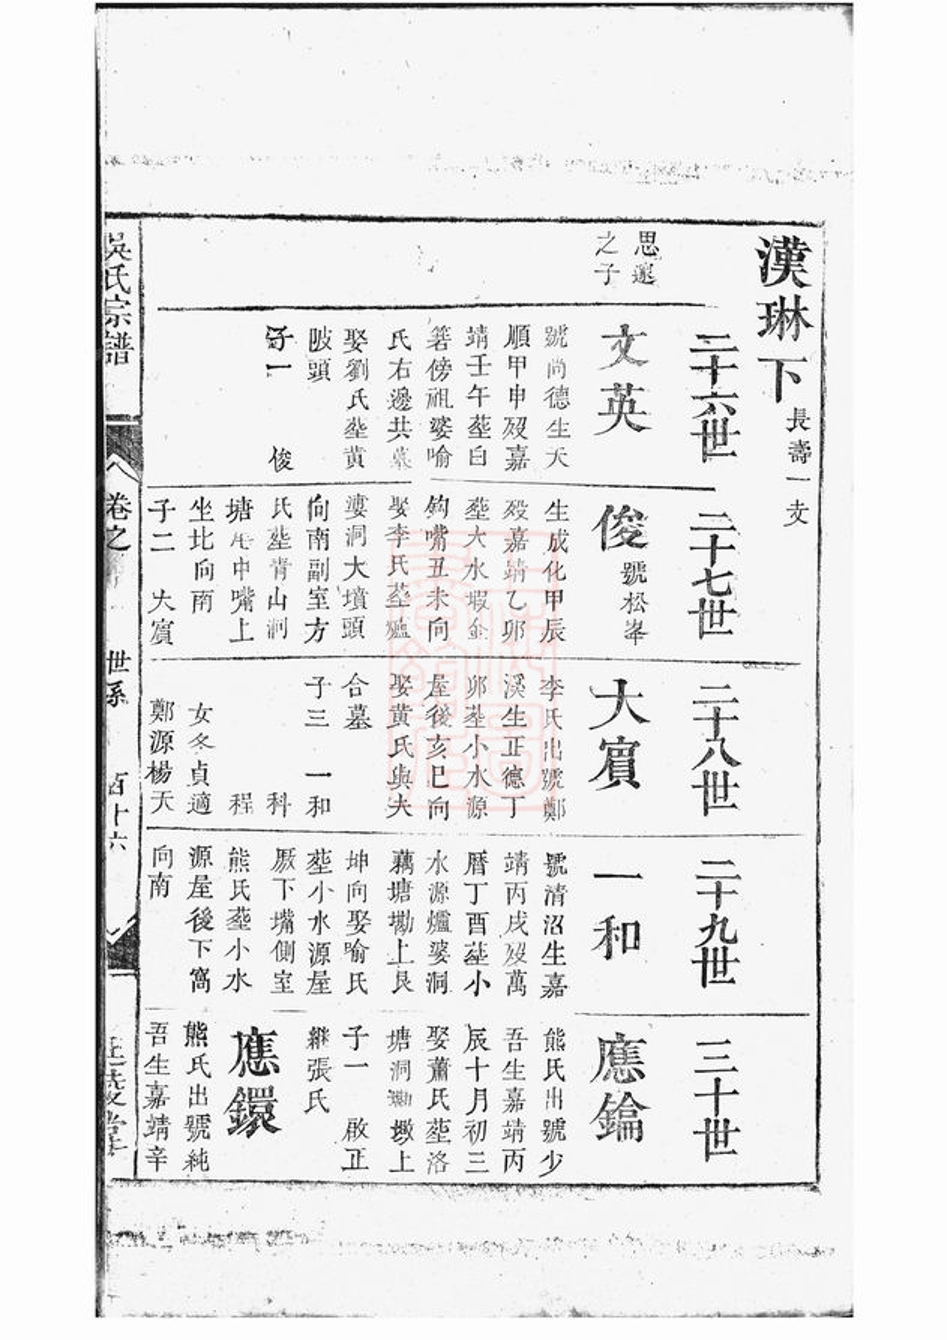 漢琳下 長壽一支
二十六世
二十七世
二十八世
二十九世
三十世
思邈
之子
文英
號尚德生天
順甲申歿嘉
靖壬午塟白
箬傍祖婆喻
氏右邊共墓
娶劉氏塟黄
陂頭
子一 俊
俊 號松峯
生成化甲辰
歿嘉靖乙卯
塟大水塅金
鈎嘴丑未向
娶李氏塟爐
婆洞大墳頭
向南副室方
氏塟青山洞
塘尾中嘴上
坐北向南
子二 大賔
大賔
李氏出號鄭
溪生正德丁
卯塟小水源
屋後亥巳向
娶黄氏與夫
合墓
子三 一和
科
程
女冬貞適
鄭源楊天
一和
號清沼生嘉
靖丙戌歿萬
曆丁酉塟小
水源爐婆洞
藕塘墈上艮
坤向娶喻氏
塟小水源屋
厫下嘴側室
熊氏塟小水
源屋後下窩
向南
應鑰
熊氏出號少
吾生嘉靖丙
辰十月初三
娶蕭氏塟洛
塘洞墈墩上
子一 啟正
繼張氏
應鐶
熊氏出號純
吾生嘉靖辛
吳氏宗譜
卷之
世系
百十六